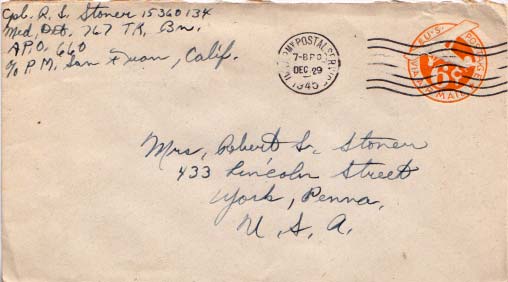 Cpl. R. S. Stoner 15360134
Med. Det. 767 TK, Bn.
A.P.O. 660
c/o P.M. San Fran, Calif.
U.S. ARMY POSTAL SERVICE
7-BPO
DEC 29
1945
U.S. POSTAGE
6c
VIA AIR MAIL
Mrs. Robert S. Stoner
433 Lincoln Street
York, Penna.
U. S. A.